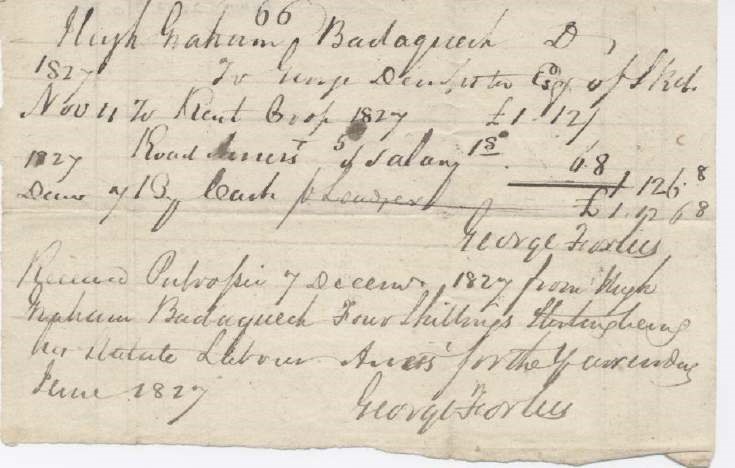 66
Hugh Graham Badaguech Dr
1827 To George Dempster Esqr. of Skibo
Nov 11 To Rent Crop 1827 £1 12/
Road Assesst 5d Salary 1s 6 8
1827 1 12 6 8
Decr 7 By Cash p Ledger £1. 12 6 8
George Forbes
Received Pulrossie 7 Decemr 1827 from Hugh
Graham Badaguech Four Shillings Sterling being
his Statute Labour Assest for the year ending
June 1827
George Forbes